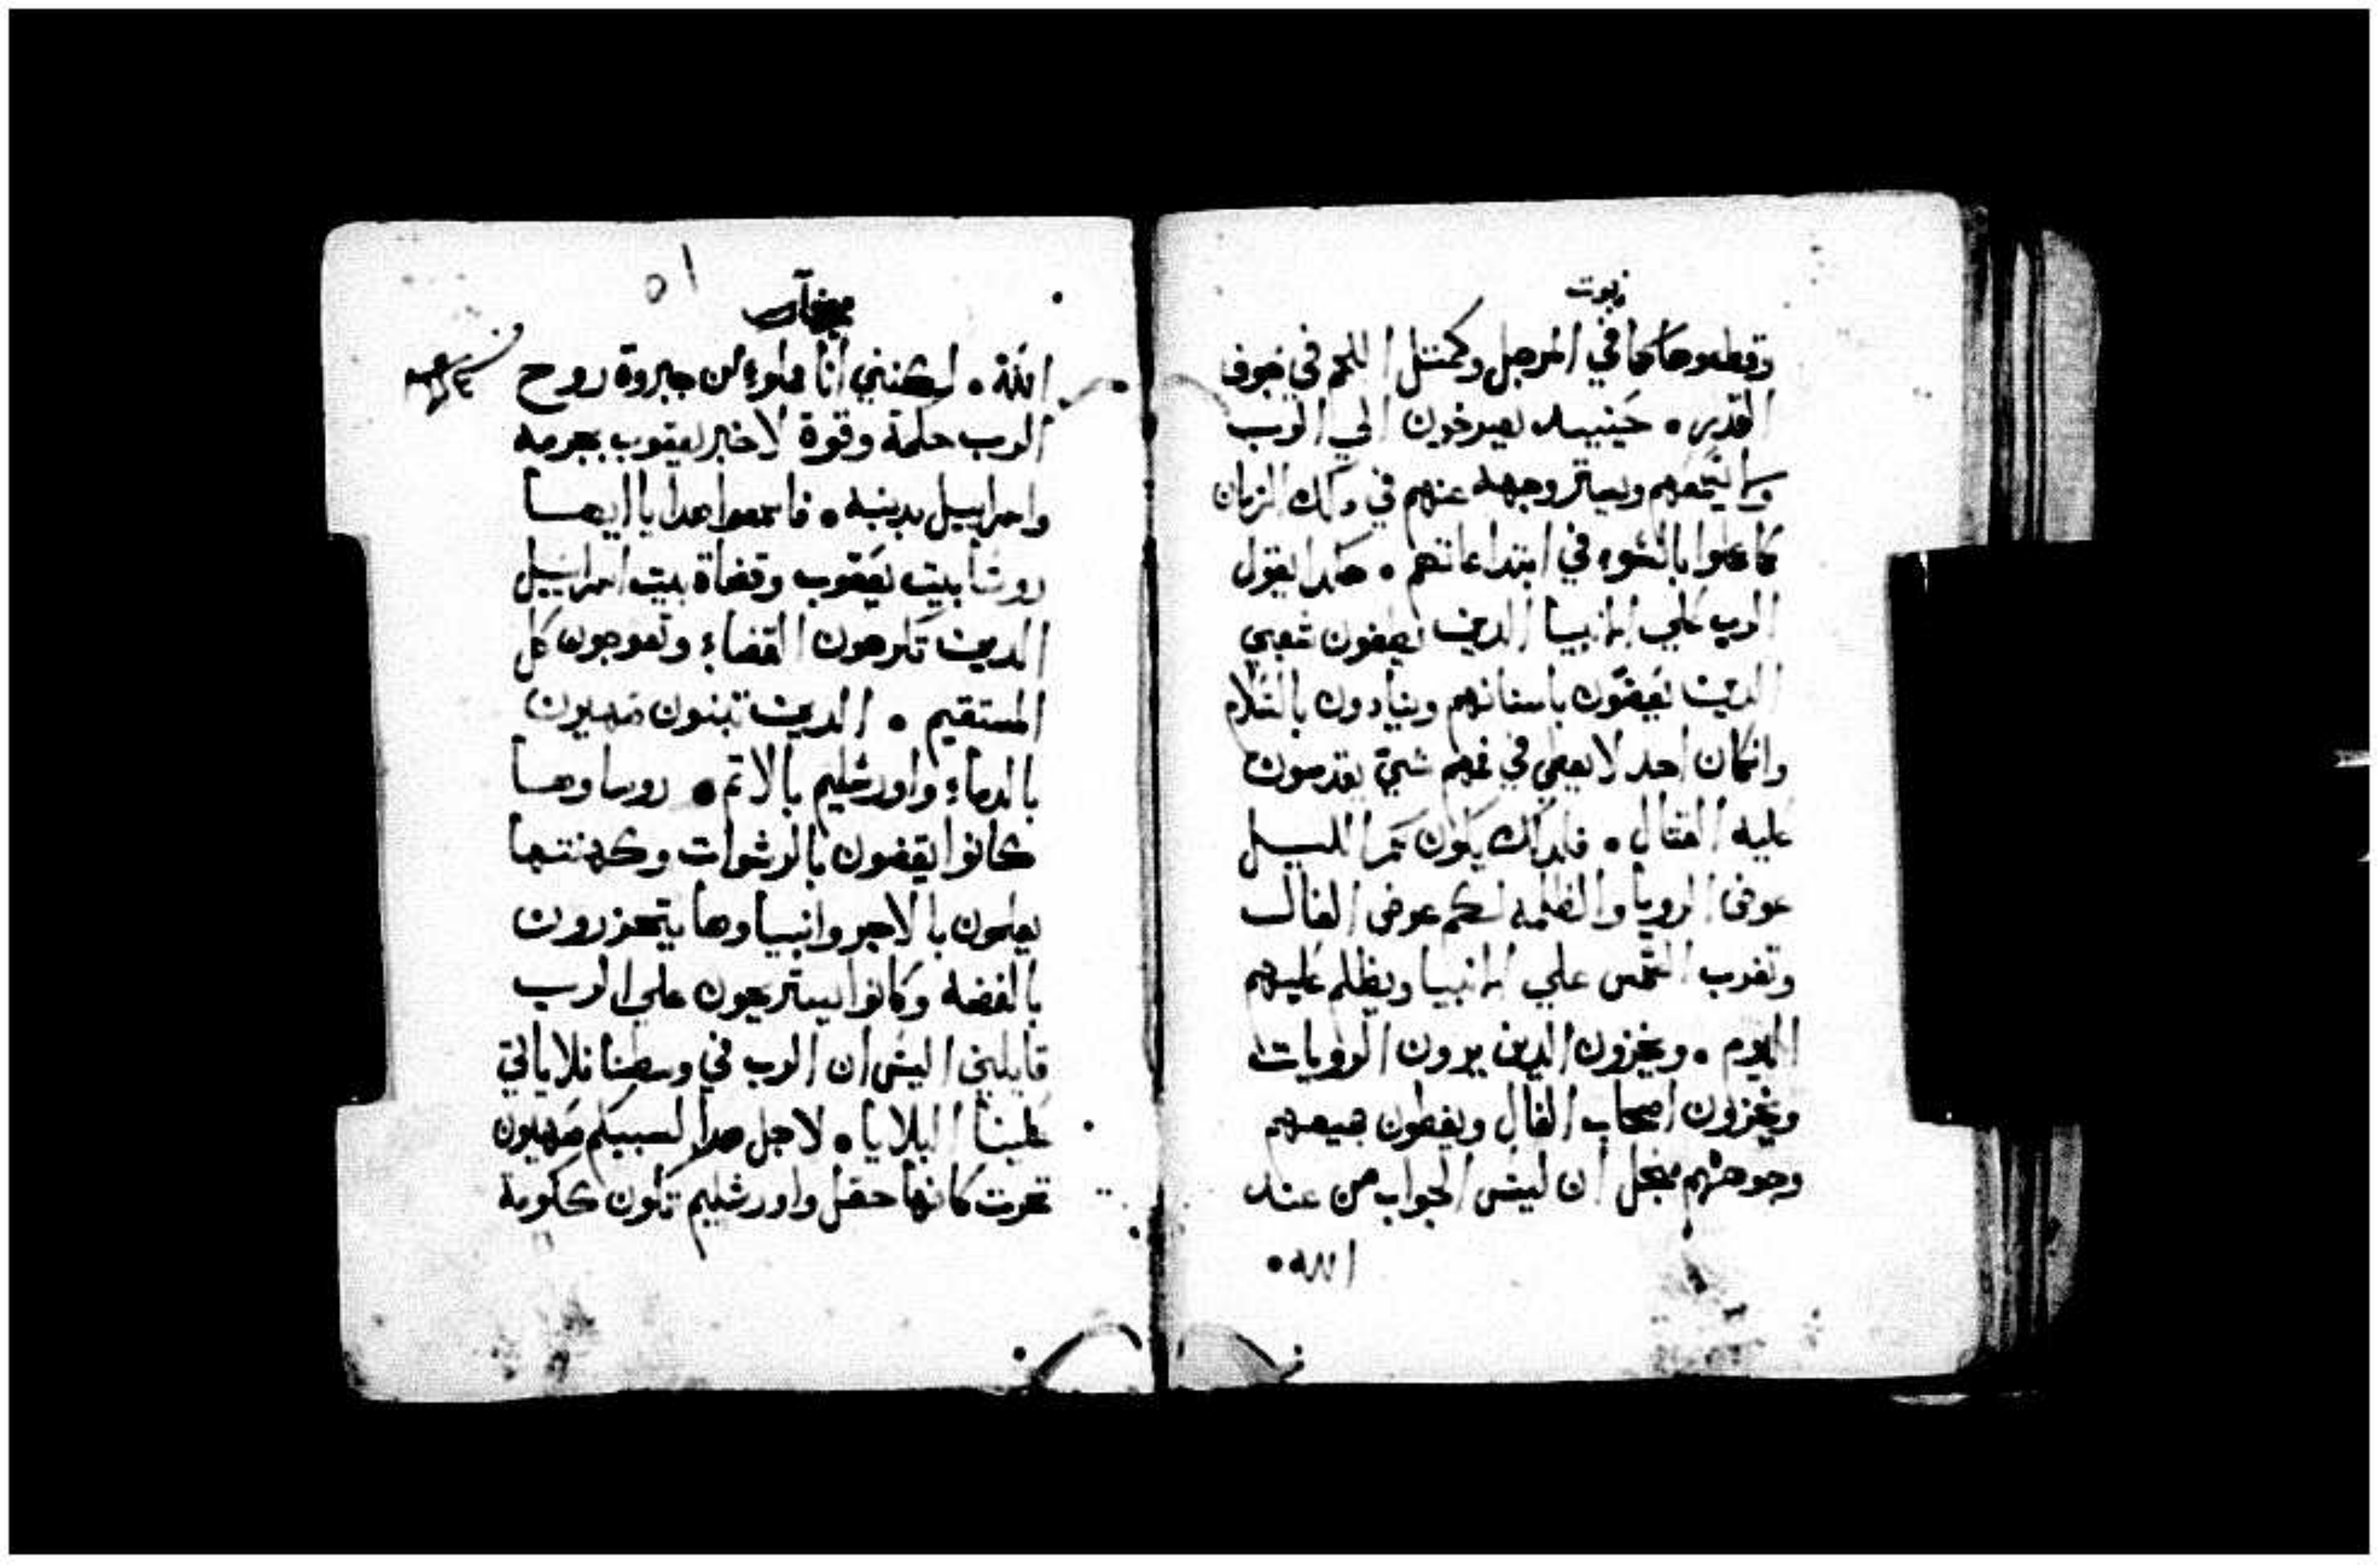 نبوت
وقطعوها كما في المرجل وكمثل اللحم في جوف
القدر • حينيد يصرخون الي الرب
ولا يسمعهم ويستر وجهه عنهم في دلك الزمان
كما عملوا بالسوء في ابتداعاتهم • هكدا يقول
الرب علي الانبيا الدين يطغون شعبي
الدين يعضون باسنانهم وينادون بالسلام
وانكان احد لا يعطي في فمهم شي يقدسون
عليه القتال • فلدلك يكون لكم الليل
عوض الرويا والظلمه لكم عوض الفال
وتغرب الشمس علي الانبيا ويظلم عليهم
اليوم • ويخزون الدين يرون الرويات
ويخزون اصحاب الفال ويغطون جميعهم
وجوههم من اجل ان ليس الجواب من عند
الله •
٥١
ميخا
الله • لكنني انا مملوء من جبروة روح
الرب حكمة وقوة لاخبر ليعقوب بجرمه
واسراييل بدنبه • فاسمعوا هدا يا ايها
روسا بيت يعقوب وقضاة بيت اسراييل
الدين تكرهون القضاء وتعوجون كل
المستقيم • الدين تبنون صهيون
بالدماء واورشليم بالاتم • روساوها
كانوا يقضون بالرشوات وكهنتها
يعلمون بالاجر وانبياوها يتحزرون
بالفضه وكانوا يستريحون علي الرب
قايلين اليس ان الرب في وسطنا فلا ياتي
علينا البلايا • لاجل هدا لسببكم صهيون
تحرت كانها حقل واورشليم تكون ككومة